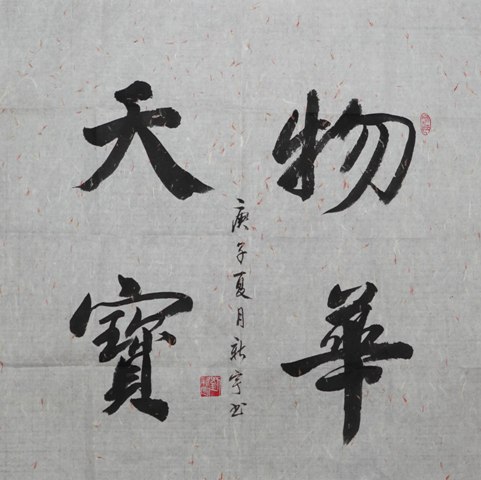 物華
天寶
庚子夏月新宇书